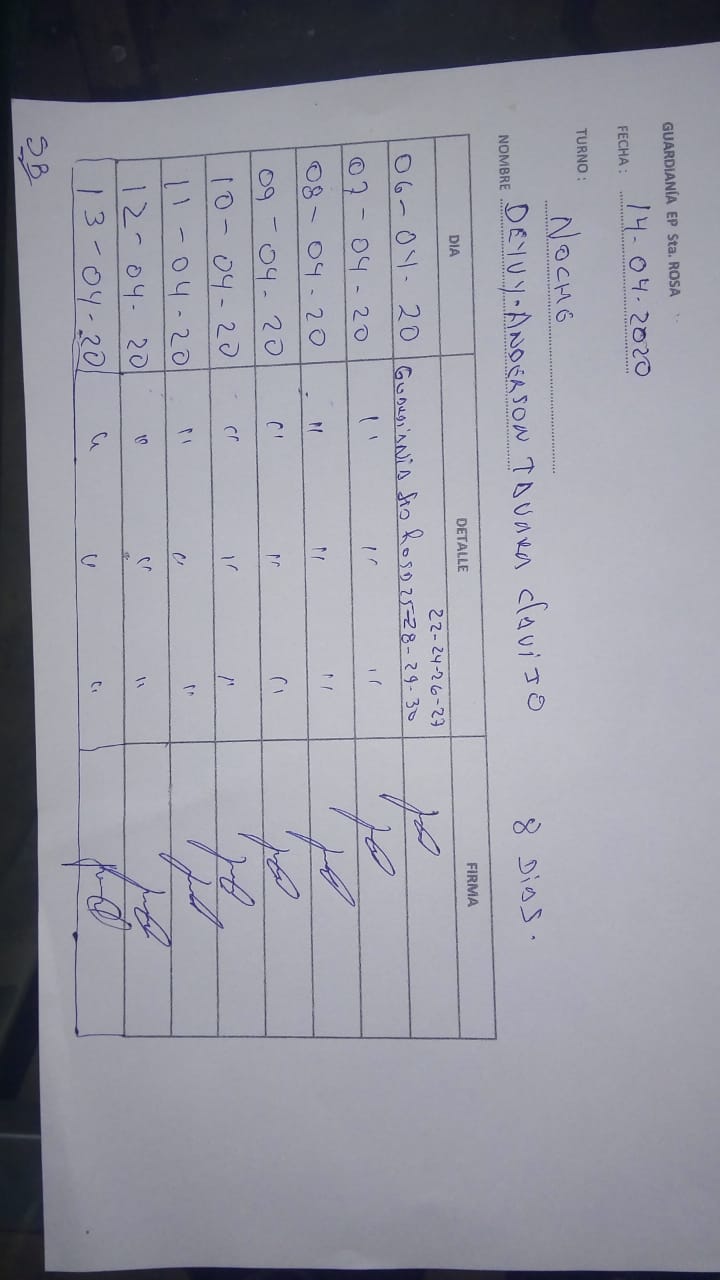 GUARDIANÍA EP Sta. ROSA
FECHA: 14-04-2020
TURNO: NOCHE
NOMBRE DEYVY-ANDERSON TAVARA CLAVIJO 8 DIAS.
DIA DETALLE FIRMA
22-24-26-27
06-04-20 Guardiania Sta Rosa 25-28-29-30
07-04-20 " " "
08-04-20 " " "
09-04-20 " " "
10-04-20 " " "
11-04-20 " " "
12-04-20 " " "
13-04-20 " " "
SB